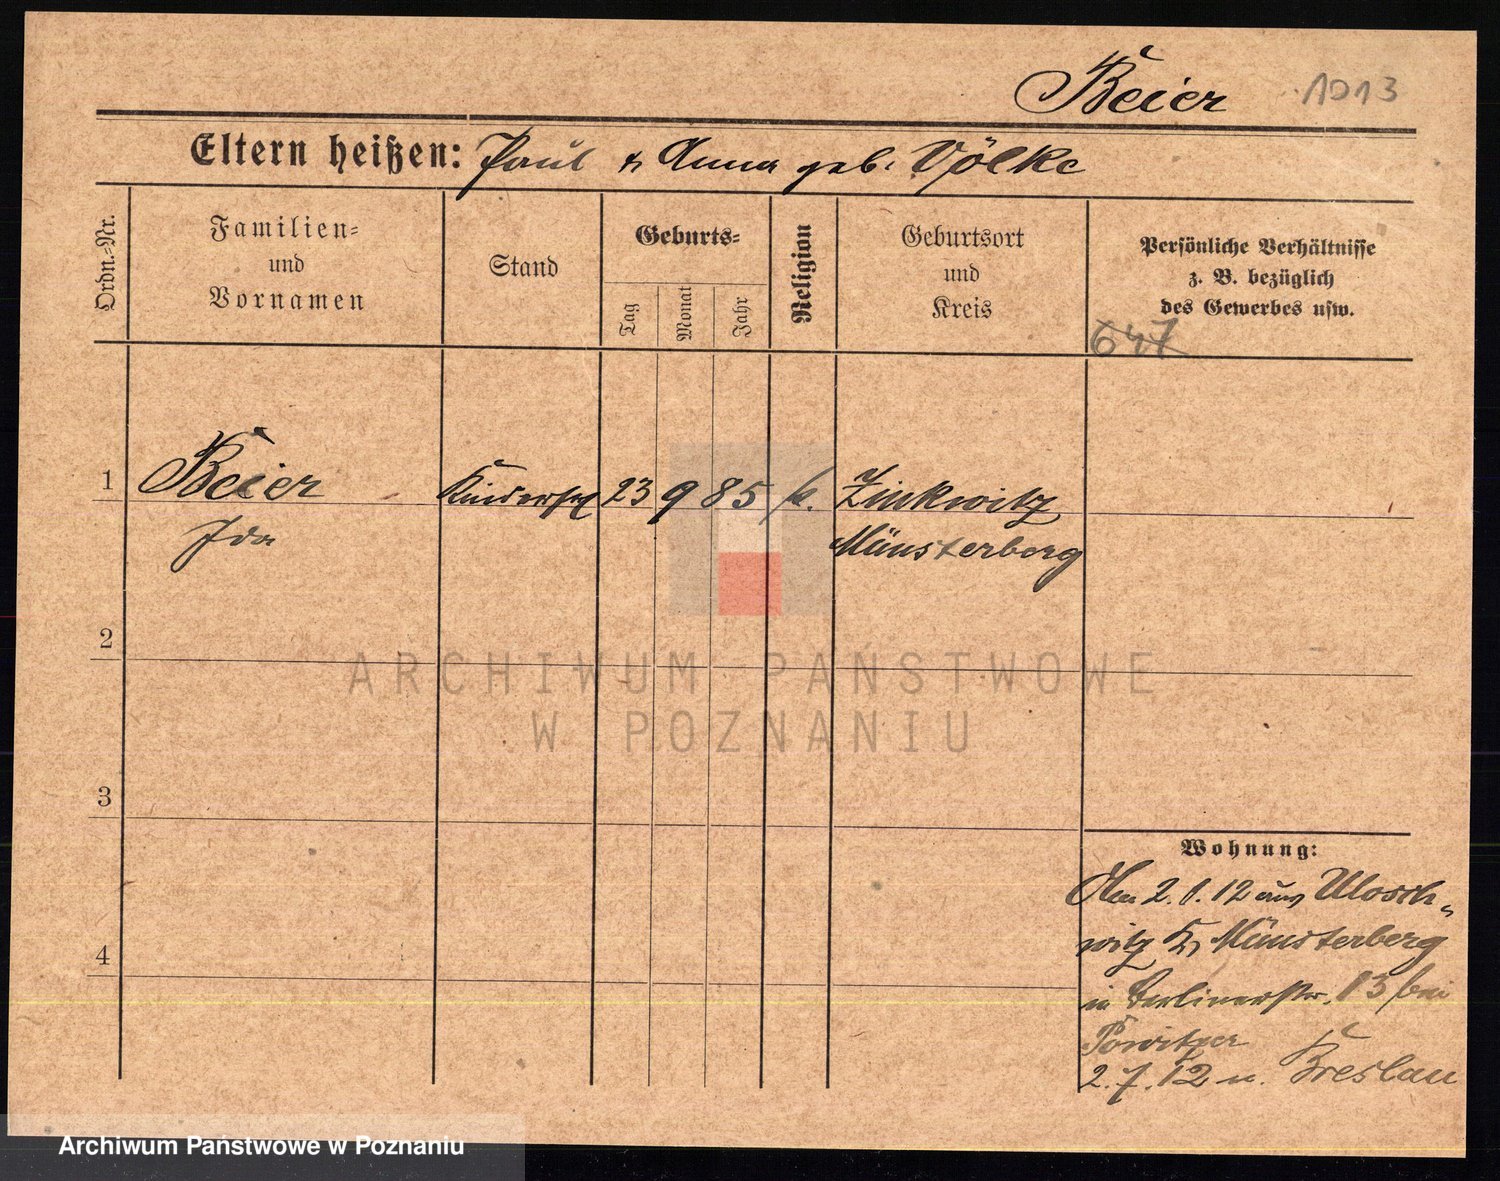 Beier 1013
Eltern heißen: Paul & Anna geb. Völke
Ordn.-Nr.
Familien-
und
Vornamen
Stand
Geburts-
Tag
Monat
Jahr
Religion
Geburtsort
und
Kreis
Persönliche Verhältnisse
z. B. bezüglich
des Gewerbes usw.
647
1 Beier 23 9 85 k. Zinkwitz
Ida Münsterberg
2
ARCHIWUM PAŃSTWOWE
W POZNANIU
3
4
Wohnung:
2.1.12 aus
witz Kr. Münsterberg
in Berlinerstr. 13 bei
2.7.12 n. Breslau
Archiwum Państwowe w Poznaniu